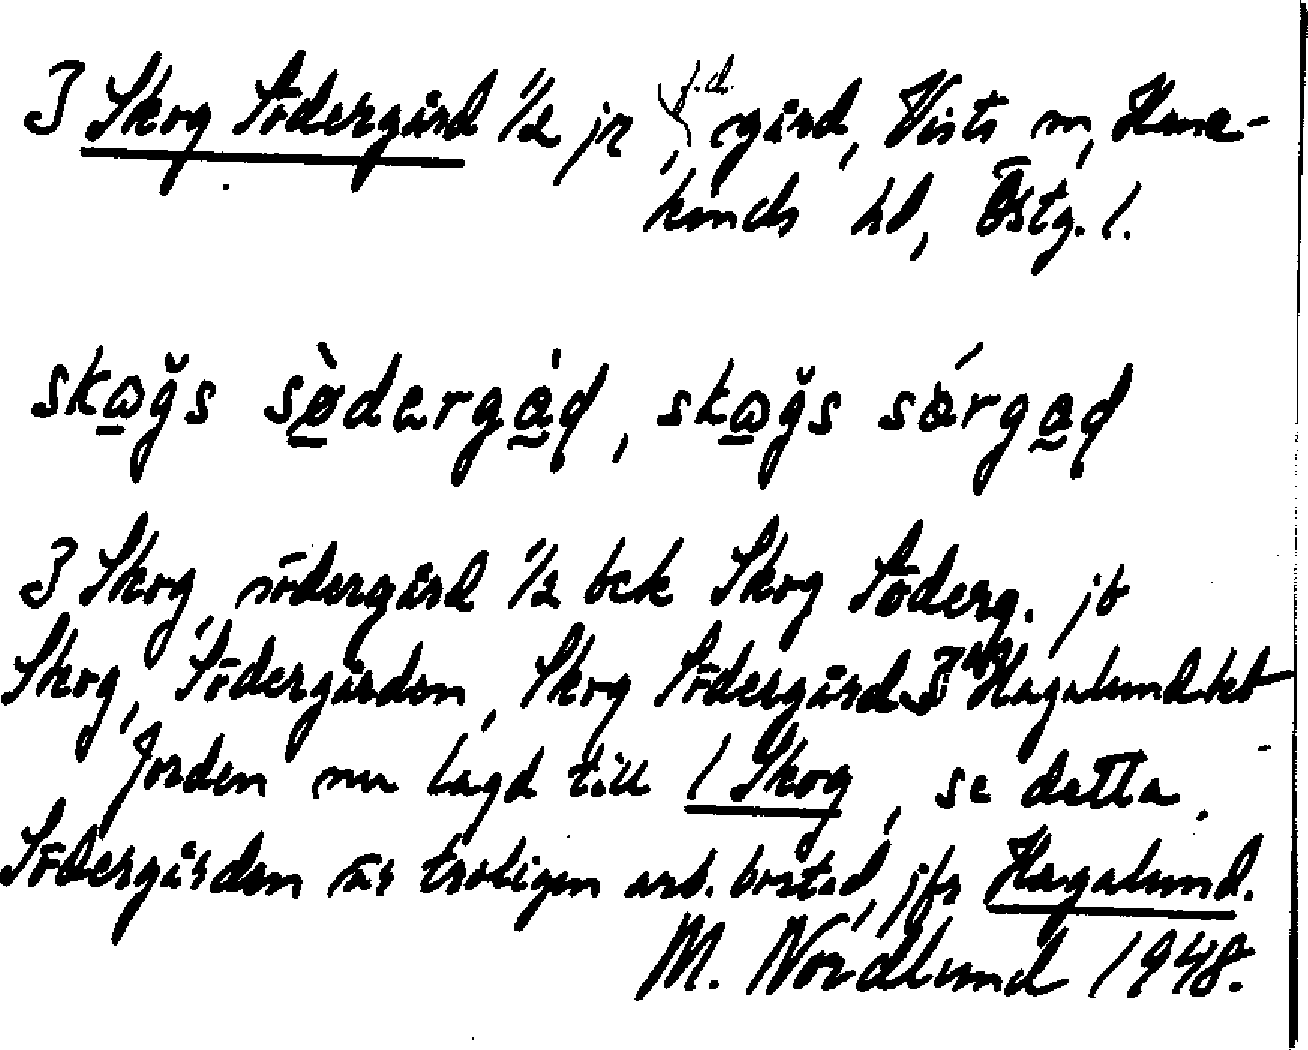 3 Skog Södergård 1/2 jr f.d. gård, Vists sn, Hane-
kinds hd, Östg. l.
skω̲ğs sø̲̀dergå̲d, skω̲ğs sǿrga̲d
3 Skog, södergård 1/2 bek Skog Söderg. jb
Skog, Södergården, Skog Södergård 3 Hagalund
Jorden nu lagd till 1 Skog, se detta.
Södergården är troligen arb. bostad, jfr Hagalund.
M. Nordlund 1948.